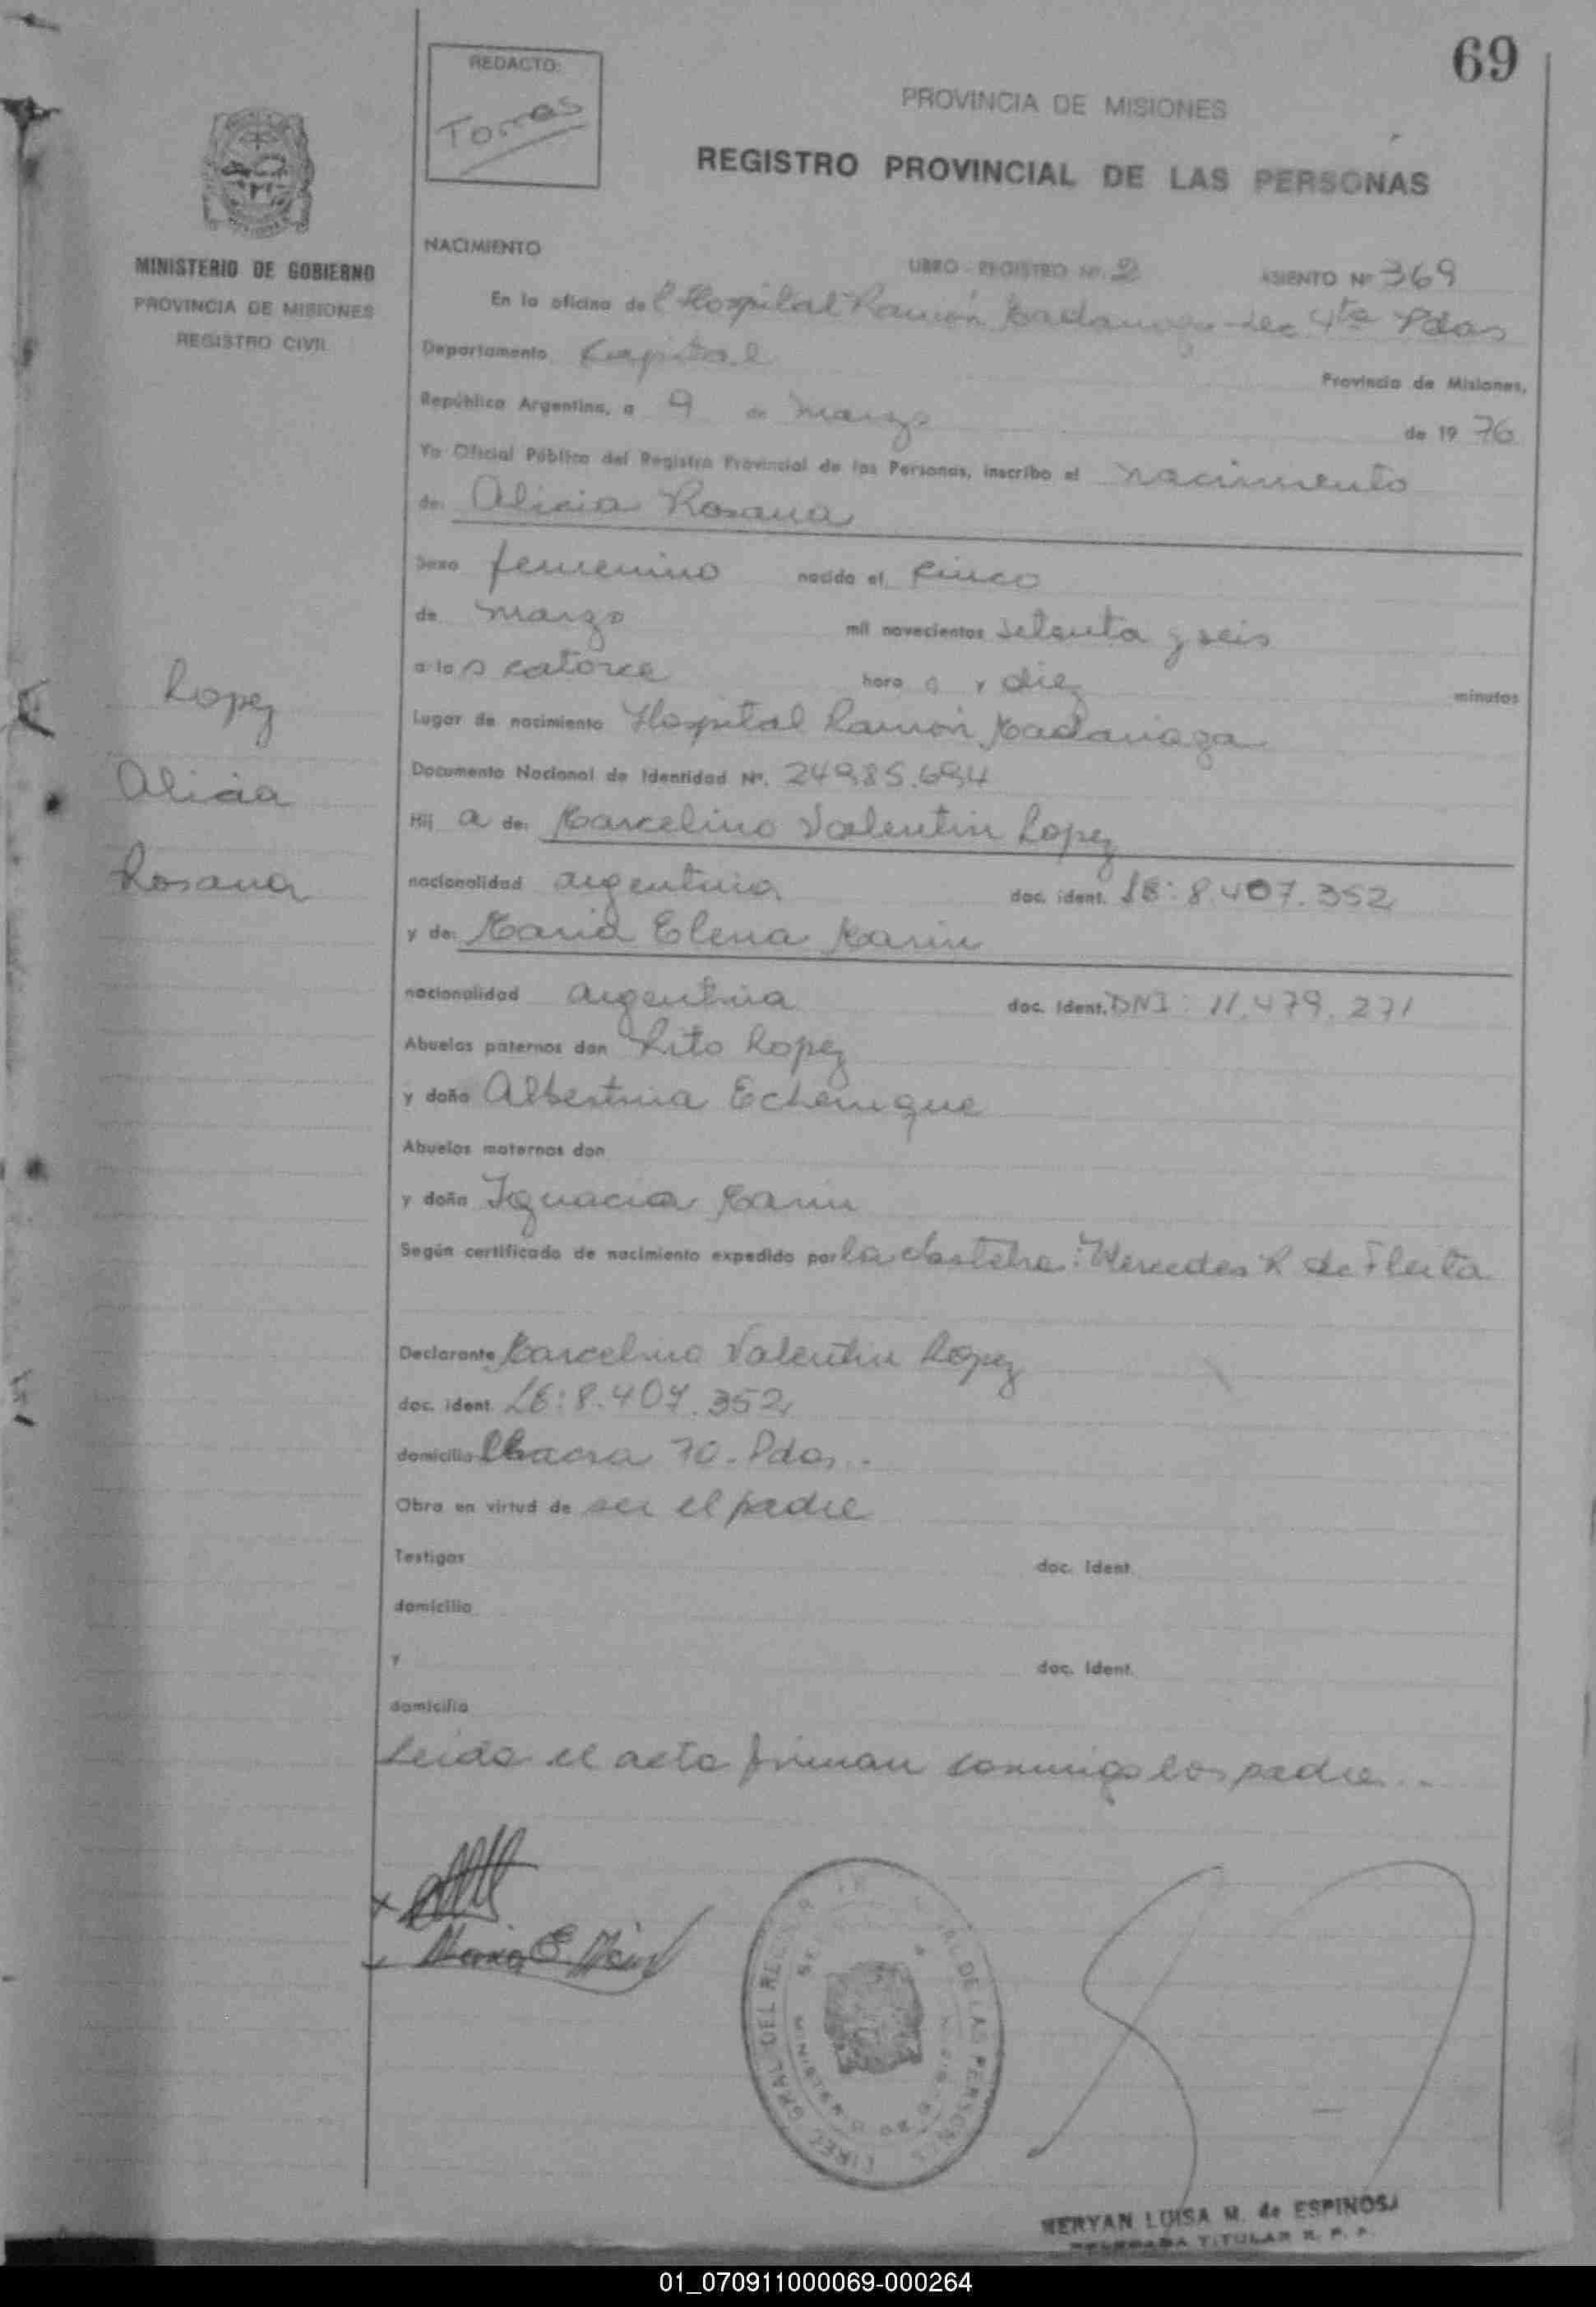 69
REDACTO:
Torres
PROVINCIA DE MISIONES
REGISTRO PROVINCIAL DE LAS PERSONAS
MINISTERIO DE GOBIERNO
PROVINCIA DE MISIONES
REGISTRO CIVIL
NACIMIENTO
LIBRO - REGISTRO Nº. 2 ASIENTO Nº 369
En la oficina del Hospital Ramón Madariaga-Sec 4ta Pdas
Departamento Capital
Provincia de Misiones,
República Argentina, a 9 de Marzo de 1976
Yo Oficial Público del Registro Provincial de las Personas, inscribo el nacimiento
de: Alicia Rosana
Sexo femenino nacido el cinco
de marzo mil novecientos setenta y seis
a las catorce hora s y diez minutos
Lugar de nacimiento Hospital Ramón Madariaga
Documento Nacional de Identidad Nº. 24.985.694
Hij a de: Marcelino Valentin Lopez
nacionalidad argentina doc. ident. LE: 8.407.352
y de: Maria Elena Marin
nacionalidad argentina doc. ident. DNI: 11.479.271
Abuelos paternos don Rito Lopez
y doña Albertina Echenique
Abuelos maternos don
y doña Ignacia Marin
Según certificado de nacimiento expedido por la Mercedes R de Fleita
Declarante Marcelino Valentin Lopez
doc. ident. LE: 8.407.352
domicilio Chacra 70 - Pdas.
Obra en virtud de ser el padre
Testigos doc. ident.
domicilio
y doc. ident.
domicilio
Leida el acta firman conmigo los padres..
Lopez
Alicia
Rosana
x
Maria E Marin
DIREC. GRAL DEL DE LAS PERSONAS
MERYAN LUISA M. de ESPINOSA
DELEGADA TITULAR R. P. P.
01_070911000069-000264